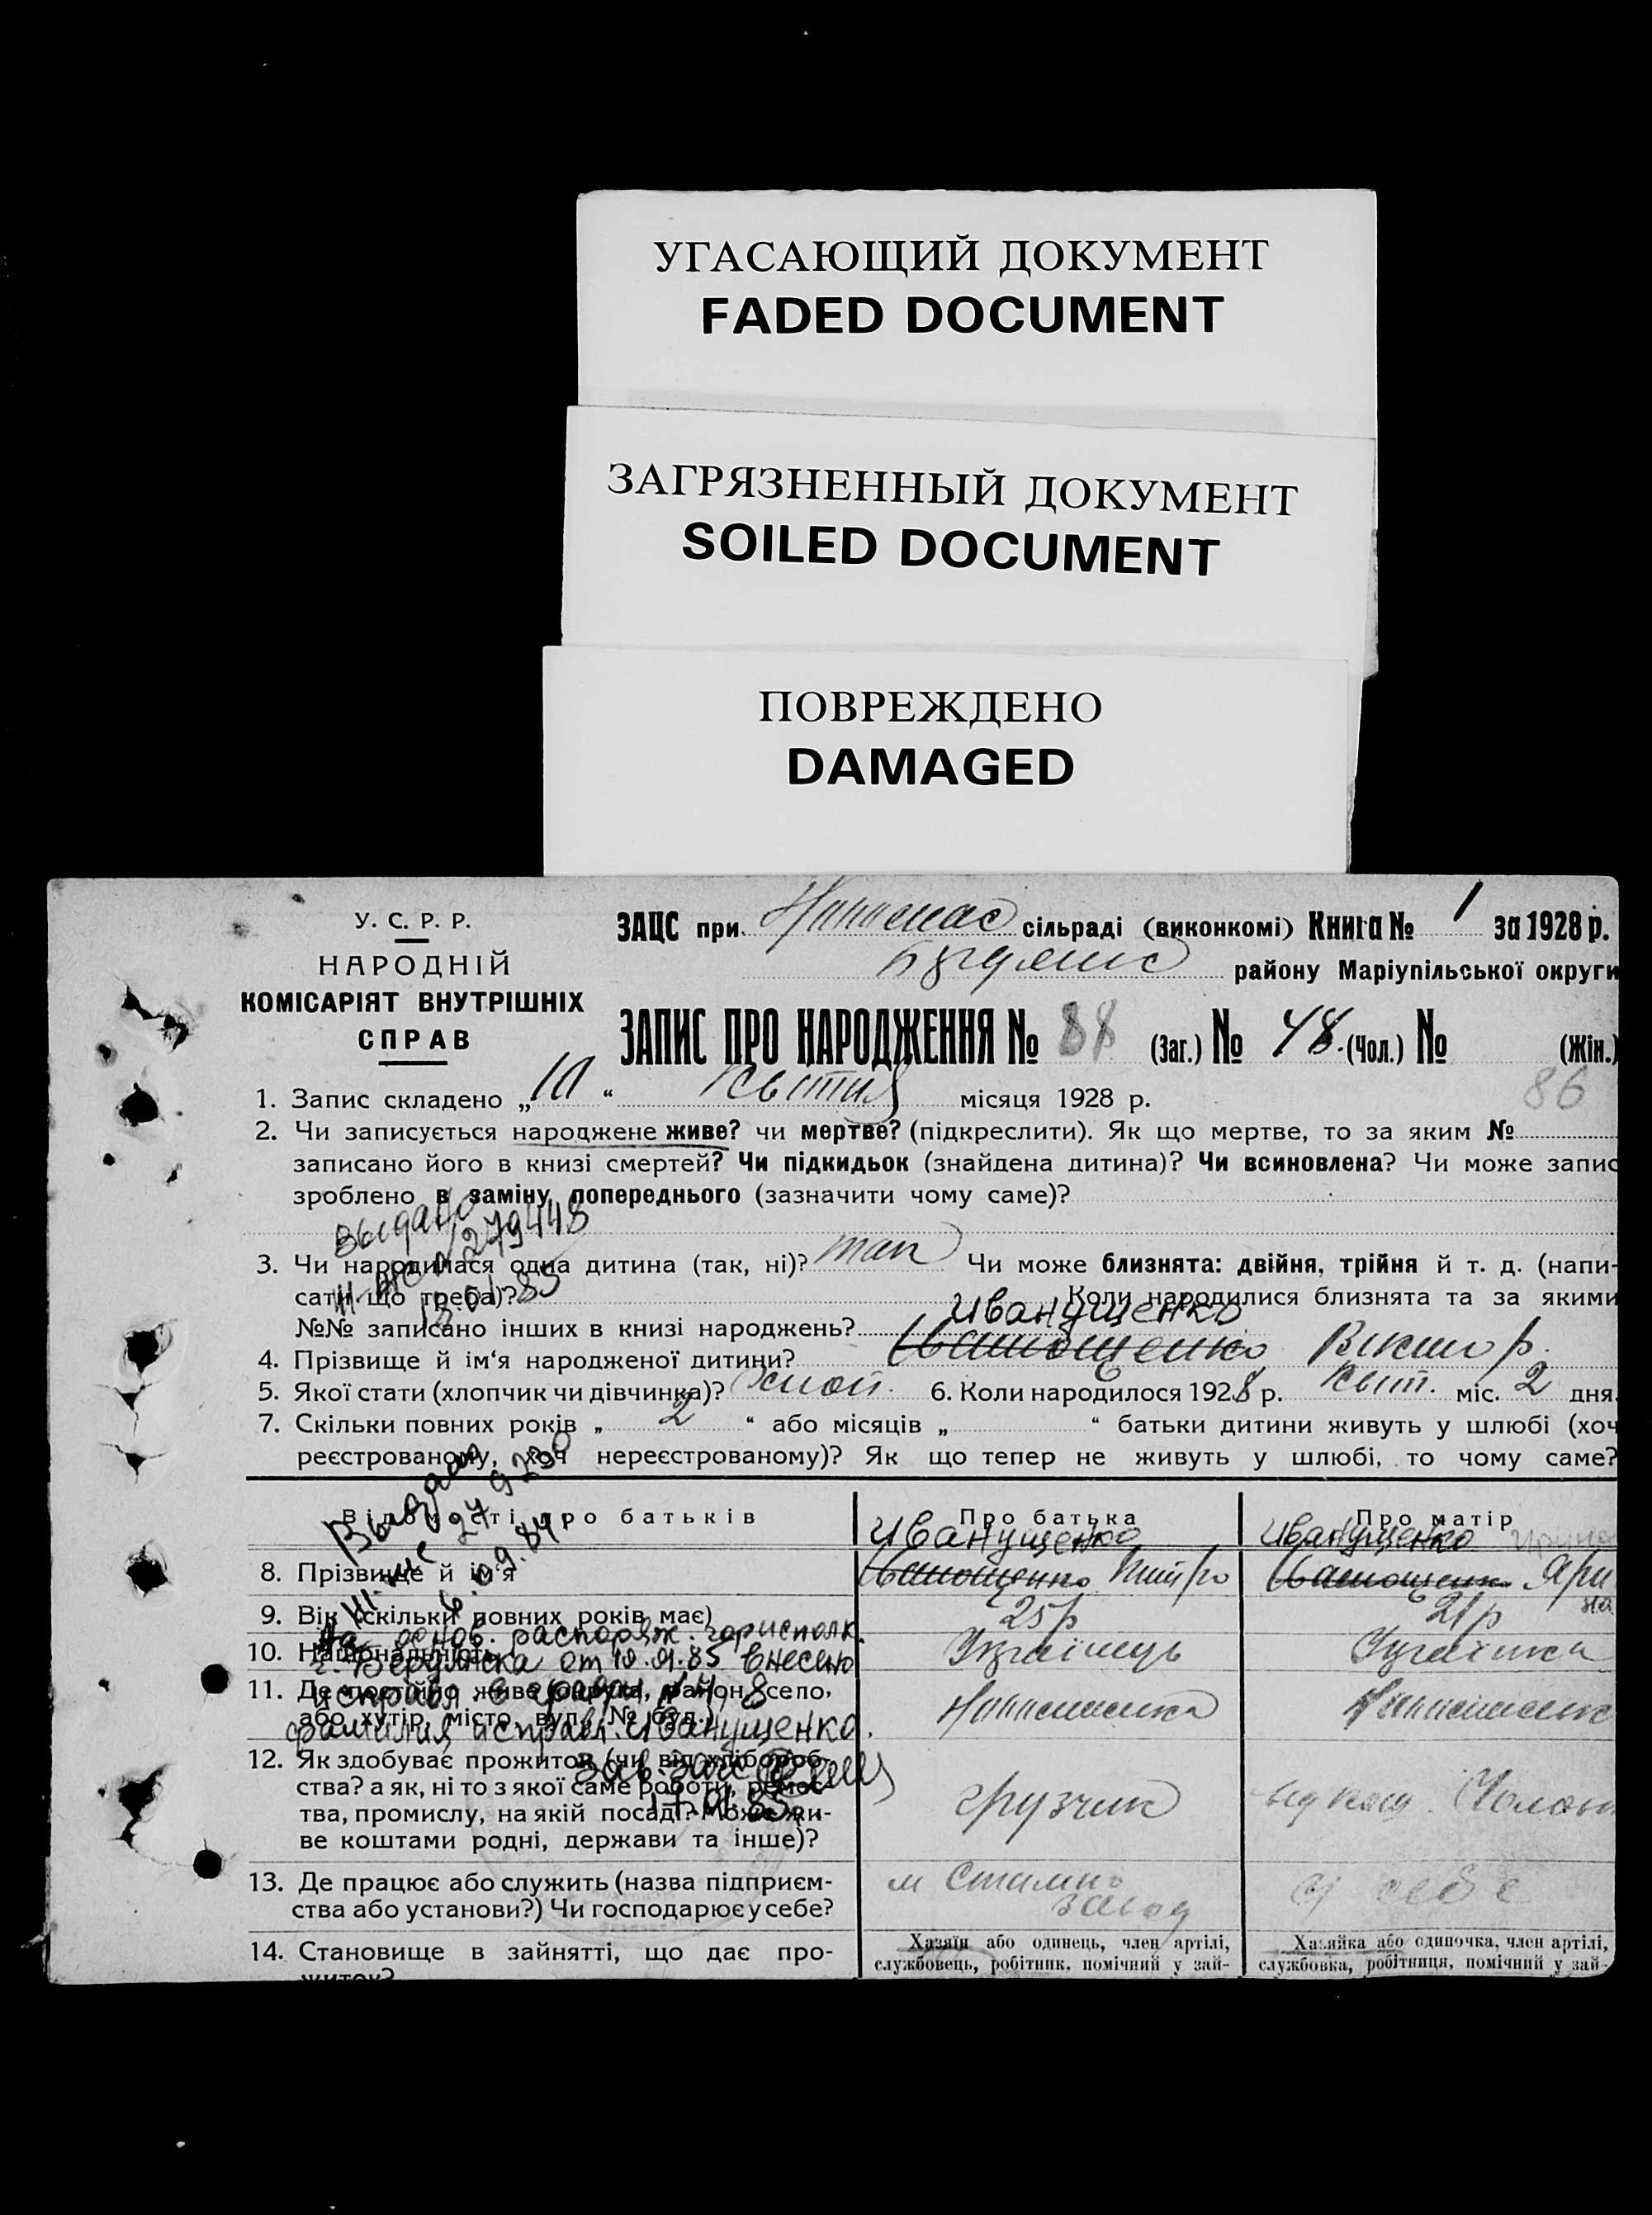 УГАСАЮЩИЙ ДОКУМЕНТ
FADED DOCUMENT
ЗАГРЯЗНЕННЫЙ ДОКУМЕНТ
SOILED DOCUMENT
ПОВРЕЖДЕНО
DAMAGED
У. С. Р. Р.
НАРОДНІЙ
КОМІСАРІЯТ ВНУТРІШНІХ
СПРАВ
ЗАЦС при сільраді (виконкомі) Книга № 1 за 1928 р.
району Маріупільської округи
ЗАПИС ПРО НАРОДЖЕННЯ № 88 (Заг.) № 48 (Чол.) № (Жін.)
86
1. Запис складено „10“ квітня місяця 1928 р.
2. Чи записується народжене живе? чи мертве? (підкреслити). Як що мертве, то за яким №
записано його в книзі смертей? Чи підкидьок (знайдена дитина)? Чи всиновлена? Чи може запис
зроблено в заміну попереднього (зазначити чому саме)?
выдано
279448
18.01.85
3. Чи народилася одна дитина (так, ні)? так Чи може близнята: двійня, трійня й т. д. (напи-
сати що треба)? Коли народилися близнята та за якими
№№ записано інших в книзі народжень?
Иванущенко
4. Прізвище й ім‘я народженої дитини? Віктор
5. Якої стати (хлопчик чи дівчинка)? 6. Коли народилося 1928 р. квіт. міс. 2 дня.
7. Скільки повних років „ 2 “ або місяців „ “ батьки дитини живуть у шлюбі (хоч
реєстрованому, хоч нереєстрованому)? Як що тепер не живуть у шлюбі, то чому саме?
Выдан
249230
6.09.84
Відомості про батьків Про батька Про матір
Иванущенко Иванущенко
8. Прізвище й ім‘я Ярина
9. Вік (скільки повних років має) 25 р 21 р
10. Національність Українець Українка
11. Де постійно живе (округа, район, село,
або хутір, місто, вул., № буд.)
На основ. распоряж. горисполк.
г. Бердянска от 10.01.85 внесено
исправл. в графы №4, 8
фамилия исправл. Иванущенко.
зав. загс
17.01.85
12. Як здобуває прожиток (чи від хлібороб-
ства? а як, ні то з якої саме роботи, ремес-
тва, промислу, на якій посаді? Може жи-
ве коштами родні, держави та інше)?
грузчик
13. Де працює або служить (назва підприєм-
ства або установи?) Чи господарює у себе?
завод
у себе
14. Становище в зайнятті, що дає про-
житок?
Хазяїн або одинець, член артілі,
службовець, робітник, помічний у зай-
Хазяйка або одиночка, член артілі,
службовка, робітниця, помічний у зай-